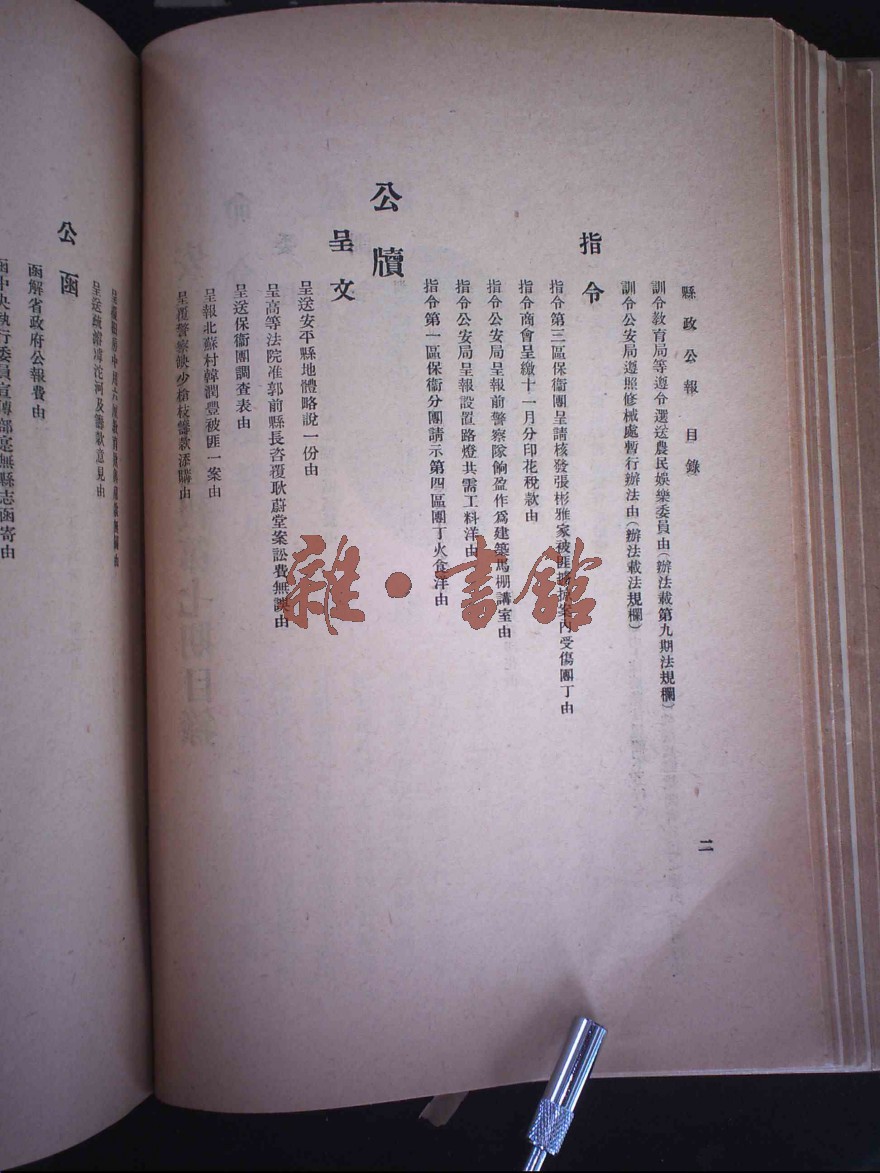 縣政公報 目錄
二
訓令教育局等遵令選送農民娛樂委員由(辦法載第九期法規欄)
訓令公安局遵照修械處暫行辦法由(辦法載法規欄)
指令
指令第三區保衞團呈請核發張彬雅家被匪案內受傷團丁由
指令商會呈繳十一月分印花税款由
指令公安局呈報前警察隊餉盈作爲建築馬棚講室由
指令公安局呈報設置路燈共需工料洋由
指令第一區保衞分團請示第四區團丁火食洋由
公牘
呈文
呈送安平縣地體略說一份由
呈高等法院准郭前縣長咨覆耿蔚堂案訟費無誤由
呈送保衞團調查表由
呈報北蘇村韓潤豐被匪一案由
呈覆警察缺少槍枝籌款添購由
呈送疏濬滹沱河及籌款意見由
公函
函解省政府公報費由
函中央執行委員宣傳部寔無縣志函寄由
雜·書館